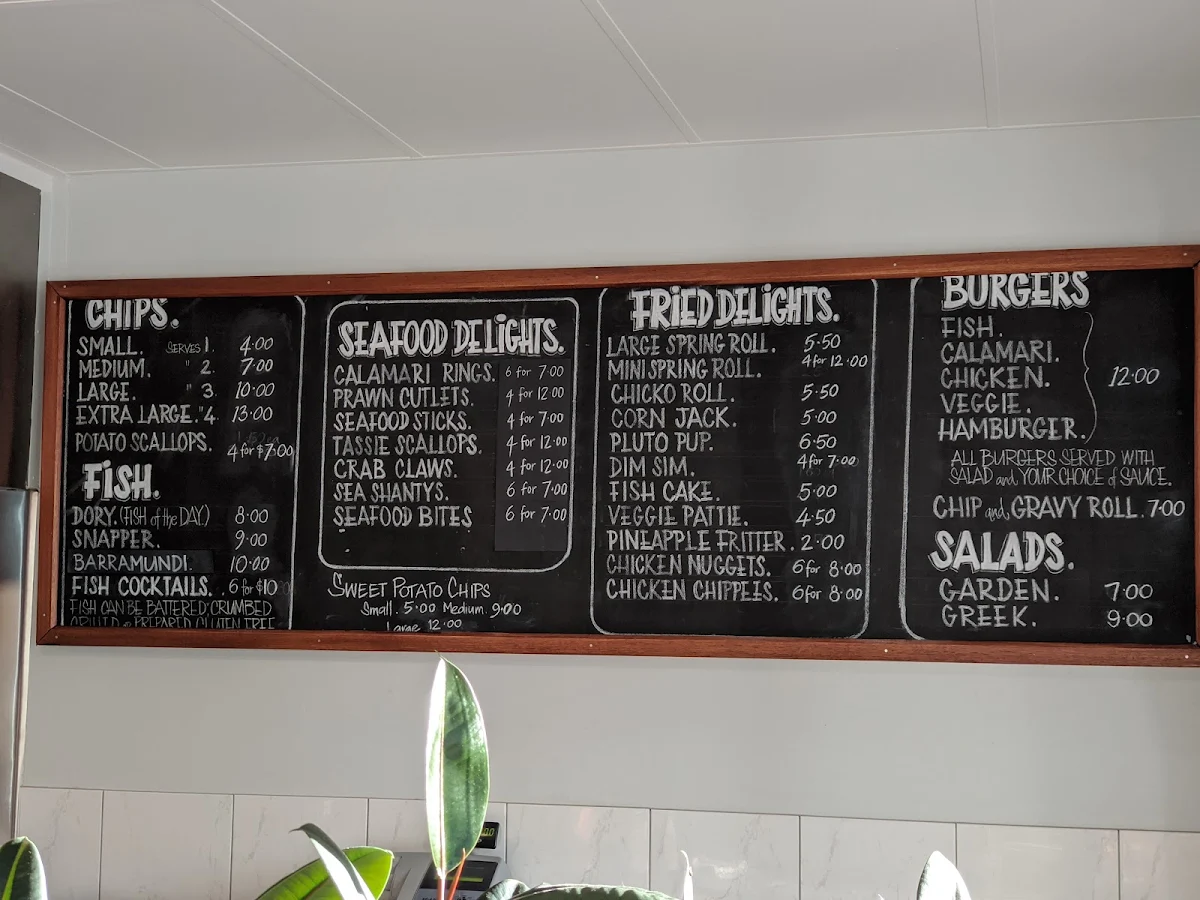 CHIPS.
SMALL. SERVES 1. 4.00
MEDIUM. " 2. 7.00
LARGE. " 3. 10.00
EXTRA LARGE. " 4. 13.00
POTATO SCALLOPS. 4 for $7.00
FISH.
DORY. (FISH of the DAY) 8.00
SNAPPER. 9.00
BARRAMUNDI. 10.00
FISH COCKTAILS. 6 for $10
FISH CAN BE BATTERED, CRUMBED
GRILLED or PREPARED GLUTEN FREE
SEAFOOD DELiGHTS.
CALAMARI RINGS. 6 for 7.00
PRAWN CUTLETS. 4 for 12.00
SEAFOOD STICKS. 4 for 7.00
TASSIE SCALLOPS. 4 for 12.00
CRAB CLAWS. 4 for 12.00
SEA SHANTYS. 6 for 7.00
SEAFOOD BITES 6 for 7.00
SWEET POTATO CHIPS
Small. 5.00 Medium. 9.00
Large 12.00
FRiED DELiGHTS.
LARGE SPRING ROLL. 5.50
MINI SPRING ROLL. 4 for 12.00
CHICKO ROLL. 5.50
CORN JACK. 5.00
PLUTO PUP. 6.50
DIM SIM. 4 for 7.00
FISH CAKE. 5.00
VEGGIE PATTIE. 4.50
PINEAPPLE FRITTER. 2.00
CHICKEN NUGGETS. 6 for 8.00
CHICKEN CHIPPEES. 6 for 8.00
BURGERS
FISH.
CALAMARI.
CHICKEN. 12.00
VEGGIE.
HAMBURGER.
ALL BURGERS SERVED WITH
SALAD and YOUR CHOICE of SAUCE.
CHIP and GRAVY ROLL. 7.00
SALADS.
GARDEN. 7.00
GREEK. 9.00